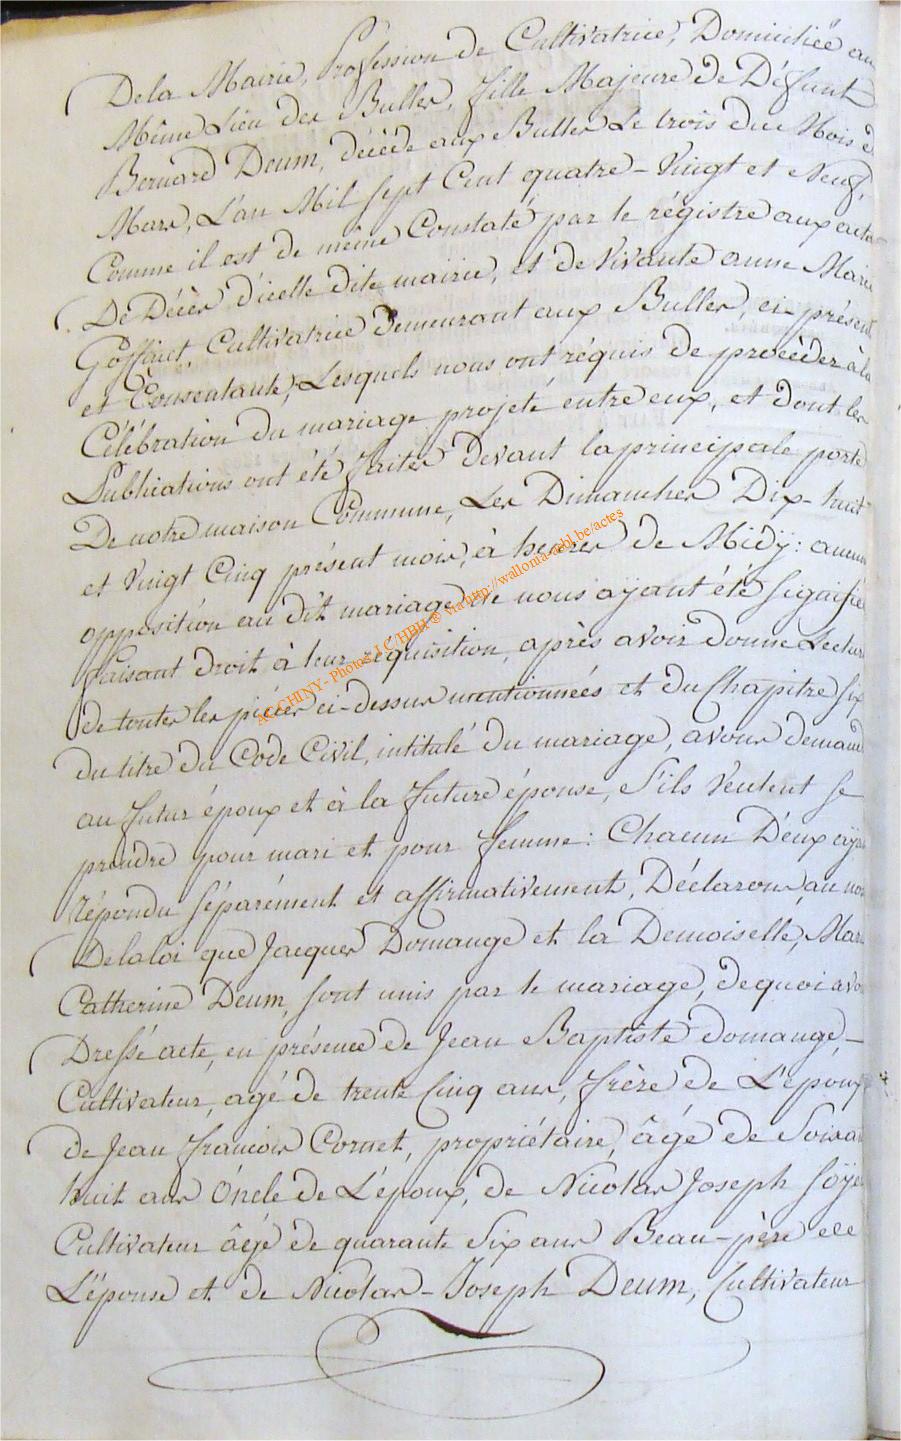 Dela Mairie, Profession de Cultivatrice, Domiciliée au
Même Lieu des Bulles, fille Majeure de Défunt
Bernard Deum, décédé aux Bulles Le trois du Mois de
Mars, L'an Mil Sept Cent quatre-Vingt et Neuf,
Comme il est de même Constaté par le régistre aux actes
De Décès d'icelle dite mairie, et de Vivante anne Marie
Goffinet, Cultivatrice Demeurant aux Bulles, ci présent
et Consentante, Lesquels nous ont réquis de procéder à la
Célébration du mariage projeté entre eux, et dont les
Publications ont été faites devant la principale porte
De notre maison Commune, Les Dimanches Dix-huit
et Vingt Cinq présent mois, à heures de Midÿ: aucun
opposition au dit mariage ne nous aÿant été signifié
faisant droit à leur réquisition, après avoir donné Lectur
de toutes les pièces ci-dessus mentionnées et du Chapitre Six
du titre du Code Civil, intitulé Du mariage, avons demand
au futur époux et à la future épouse, S'ils Veulent Se
prendre pour mari et pour femme: Chacun D'eux aÿa
répondu Séparément et affirmativement, Déclarons, au nom
Dela loi que Jacques Domange et la Demoiselle, Mari
Catherine Deum, sont unis par le mariage, de quoi avo
Dressé acte, en présence de Jean Baptiste domange,-
Cultivateur, agé de trente Cinq ans, frère de L'époux
de Jean françois Cornet, propriétaire, âgé de Soixa
huit ans Oncle de L'époux, de Nicolas Joseph Soÿe
Cultivateur âgé de quarante Six ans Beau-père de
L'épouse et de Nicolas-Joseph Deum, Cultivateur
ACGCHINY - Photos J.C/HBH ® via http://wallonia-asbl.be/actes